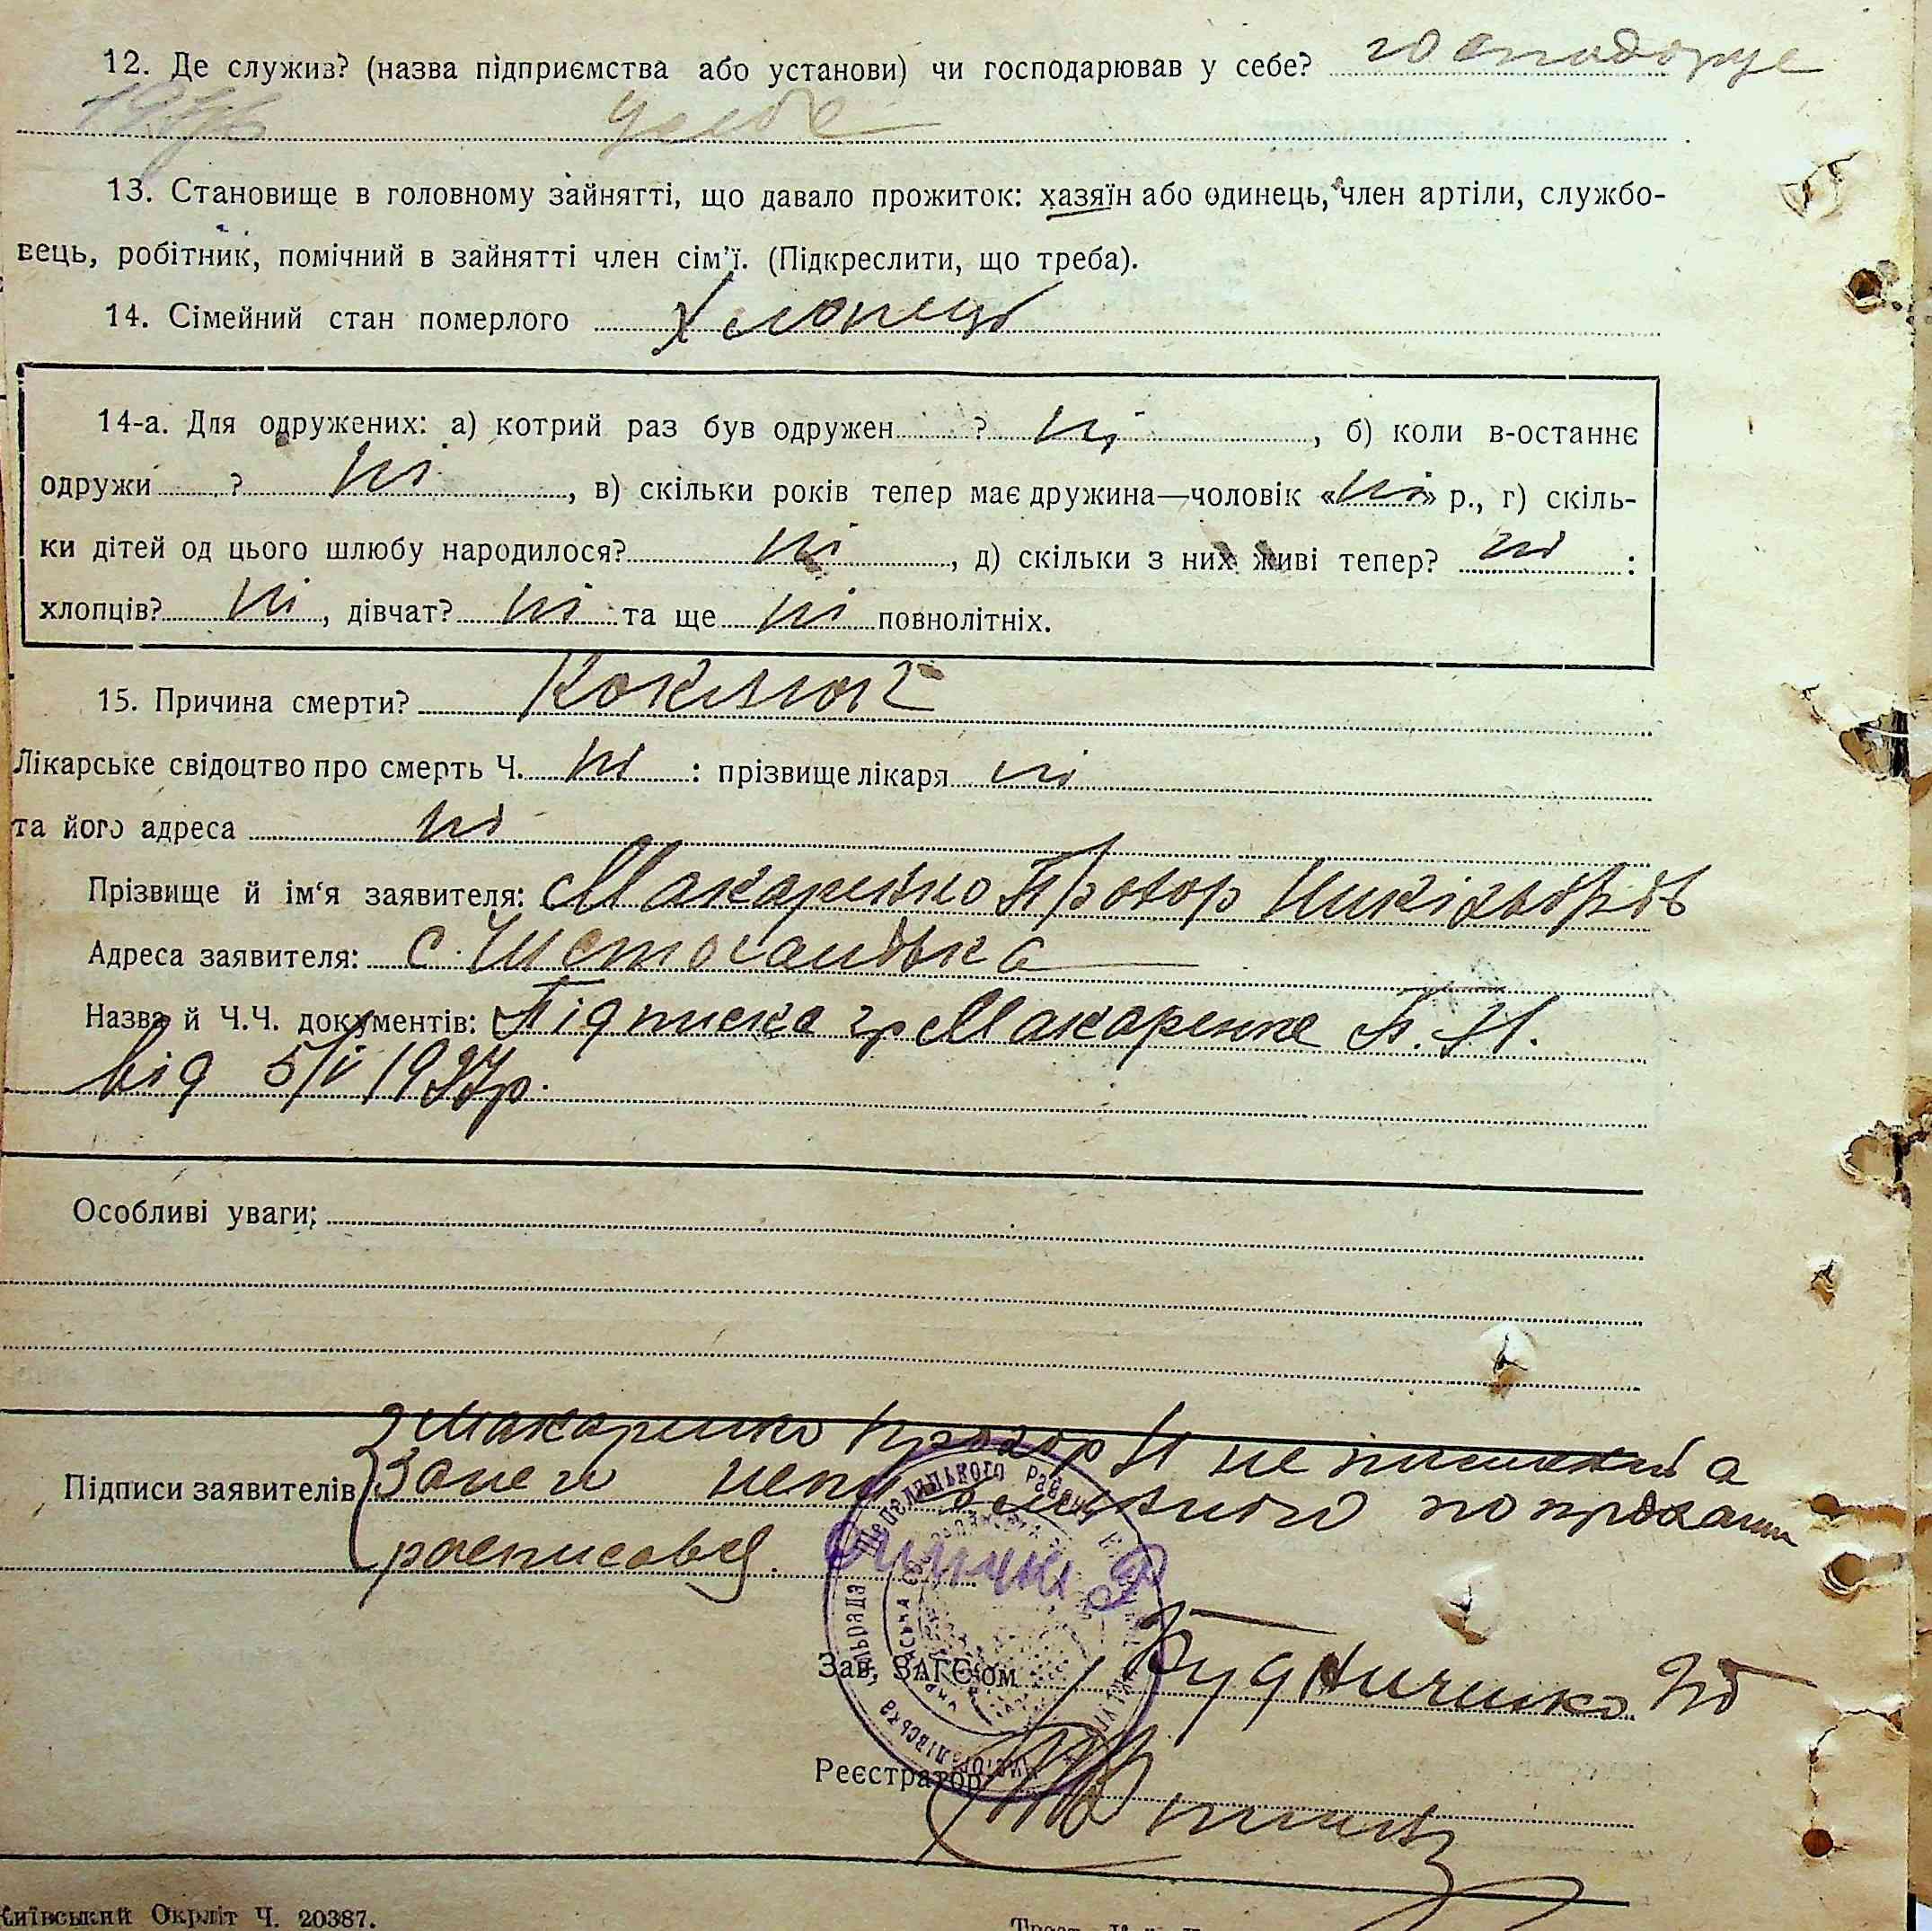 12. Де служив? (назва підприємства або установи) чи господарював у себе? господорує
у себе
13. Становище в головному зайнятті, що давало прожиток: хазяїн або одинець, член артіли, службо-
вець, робітник, помічний в зайнятті член сім'ї. (Підкреслити, що треба).
14. Сімейний стан померлого хлопець
14-а. Для одружених: а) котрий раз був одружен ? ні, б) коли в-останнє
одружи ? ні, в) скільки років тепер має дружина—чоловік «ні» р., г) скіль-
ки дітей од цього шлюбу народилося? ні, д) скільки з них живі тепер? ні :
хлопців? ні, дівчат? ні та ще ні повнолітніх.
15. Причина смерти? Коклюш
Лікарське свідоцтво про смерть Ч. ні : прізвище лікаря ні
та його адреса ні
Прізвище й ім'я заявителя: Макаренко Прохор
Адреса заявителя: с.
Назва й Ч.Ч. документів: Підписка гр Макаренка П. Н.
від 5/ 1927р.
Особливі уваги;
Макаренко Прохор Н не писменний а
Підписи заявителів За него
росписовся.
Зав. ЗАГС'ом Будниченко
Реєстратор
Київський Окрліт Ч. 20387.